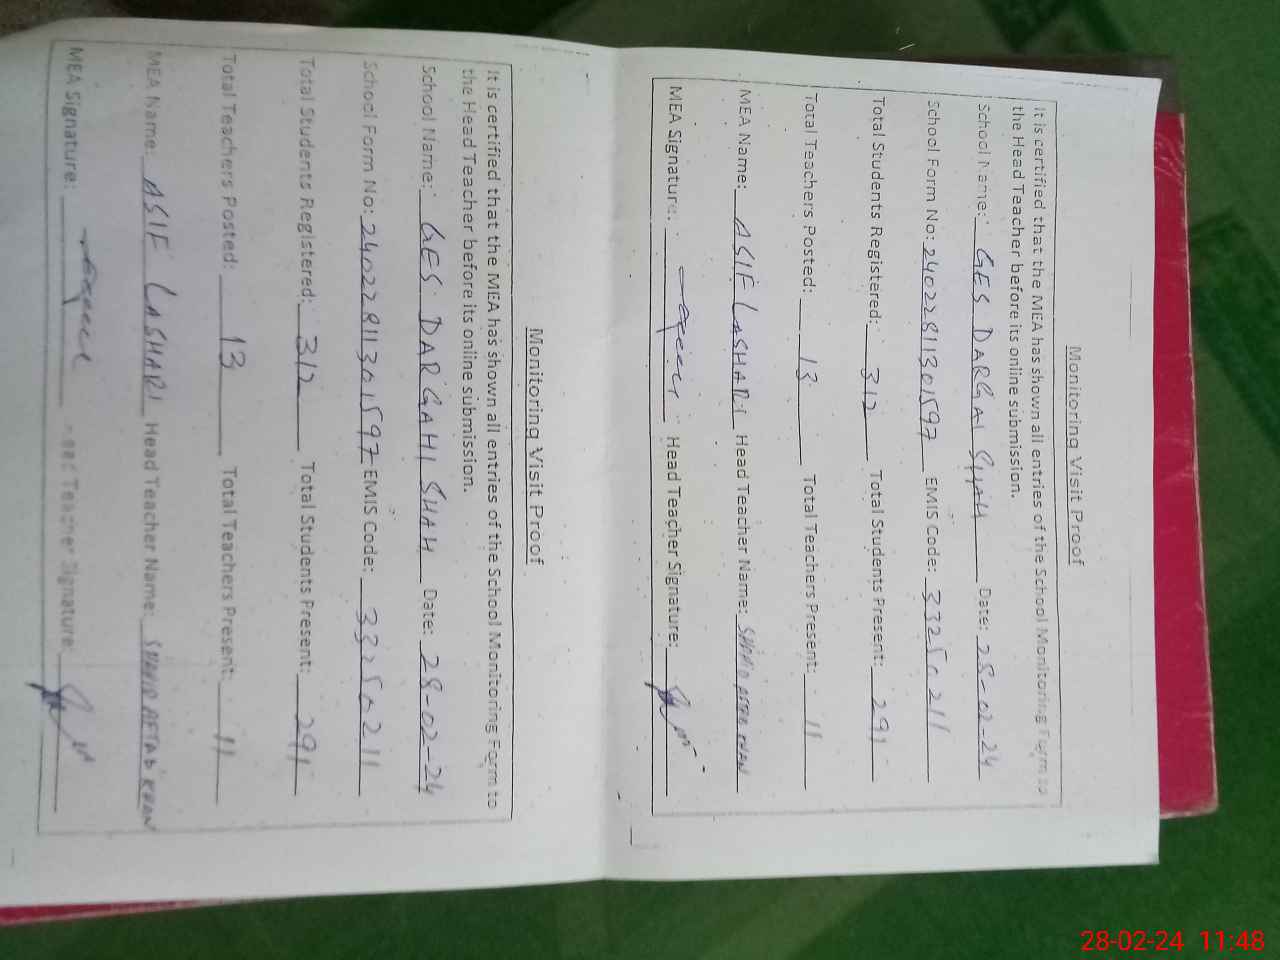 Monitoring Visit Proof
It is certified that the MEA has shown all entries of the School Monitoring Form to
the Head Teacher before its online submission.
School Name: GES DARGAI SHAH Date: 28-02-24
School Form No: 2402281130 1597 EMIS Code: 33250211
Total Students Registered: 312 Total Students Present: 291
Total Teachers Posted: 13 Total Teachers Present: 11
MEA Name: ASIF LASHARI Head Teacher Name: SHAHID AFTAB KHAN
MEA Signature: Head Teacher Signature:
Monitoring Visit Proof
It is certified that the MEA has shown all entries of the School Monitoring Form to
the Head Teacher before its online submission.
School Name: GES DARGAHI SHAH Date: 28-02-24
School Form No: 2402281130 1597 EMIS Code: 33250211
Total Students Registered: 312 Total Students Present: 291
Total Teachers Posted: 13 Total Teachers Present: 11
MEA Name: ASIF LASHARI Head Teacher Name: SHAHID AFTAB KHAN
MEA Signature: Head Teacher Signature:
28-02-24 11:48